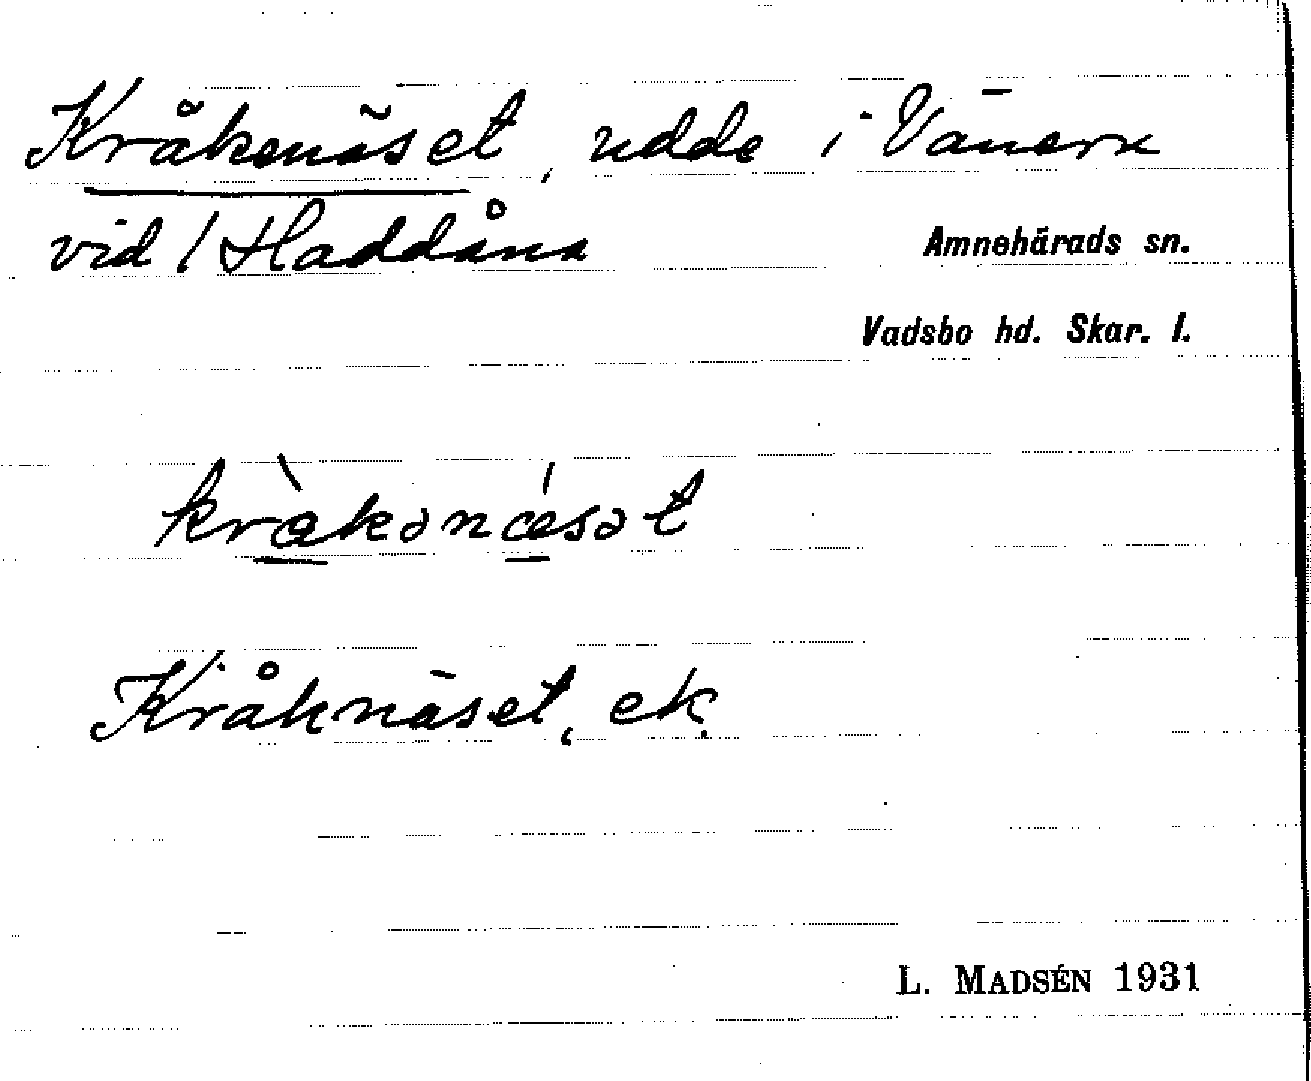 Kråkenäset, udde i Vänern
vid / Haddåna
Amnehärads sn.
Vadsbo hd. Skar. l.
kràkənǽsət
Kråknäset, ek.
L. MADSÉN 1931